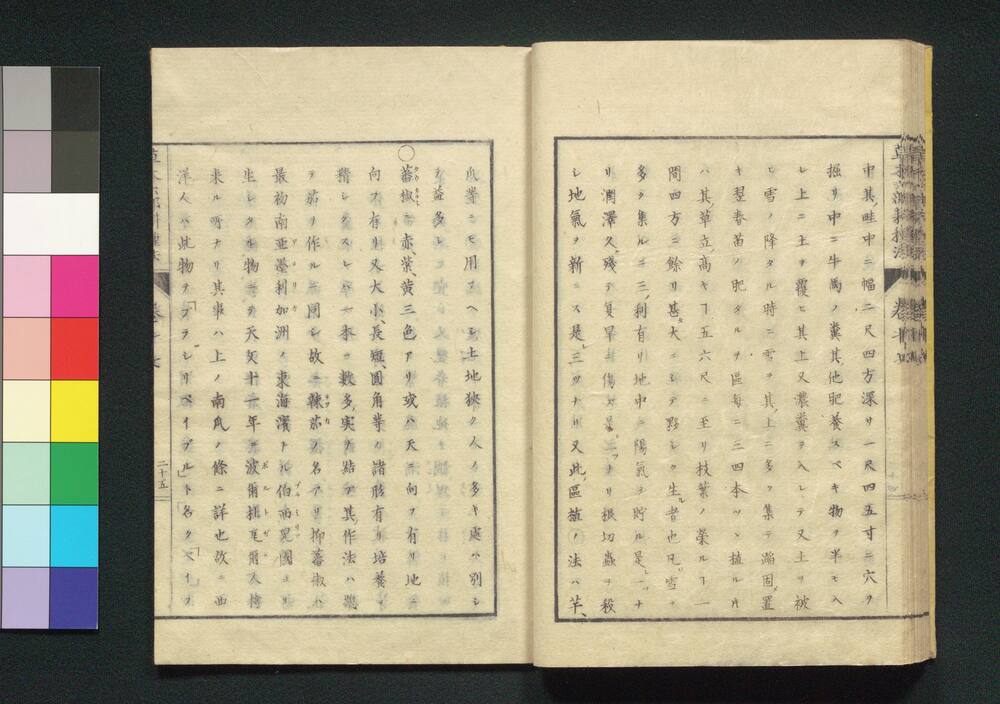 中其畦中ニ幅二尺四方深サ一尺四五寸ニ穴ヲ
掘リ中ニ牛馬ノ糞其他肥養スベキ物ヲ半モ入
レ上ニ土ヲ覆ヒ其上又濃糞ヲ入レテ又土ヲ被
ヒ雪ノ降タル時ニ雪ヲ其上ニ多ク集テ蹈固置
キ翌春苗ノ肥タルヲ區毎ニ三四本ツヽ植ル片
ハ其草立高キヿ五六尺ニ至リ枝葉ノ榮ルヿ一
間四方ニ餘リ甚大ニシテ夥シク生ル者也凡雪ヲ
多ク集ルニ三利有リ地中ニ陽氣ヲ貯ル是一ツナ
リ潤澤久殘テ復旱傷セズ是二ツナリ根切蟲ヲ殺
シ地氣ヲ新ニス是三ツナリ又此區植ノ法ハ芋、
瓜等ニモ用フヘシ土地狭ク人ノ多キ處ハ別シ
テ益多シ
○蕃椒ニ赤、紫、黄三色アリ或ハ天ニ向フ有リ地ニ
向フ存リ又大小、長短、圓角等ノ諸形有リ培養ヲ
精シクスレバ一本ニ數多實ヲ結ブ其作法ハ總
テ茄ヲ作ルニ同シ故ニ辣茄ノ名アリ抑蕃椒ハ
最初南亜墨利加洲ノ東海濱ナル伯西兒國ヨリ
生シタル物ニテ天文十一年ニ波爾杜瓦爾人持
来ル所ナリ其事ハ上ノ南瓜ノ條ニ詳也故ニ西
洋人ハ此物ヲ「ブラシリペイプル」ト名ク「ペイプ
二十五